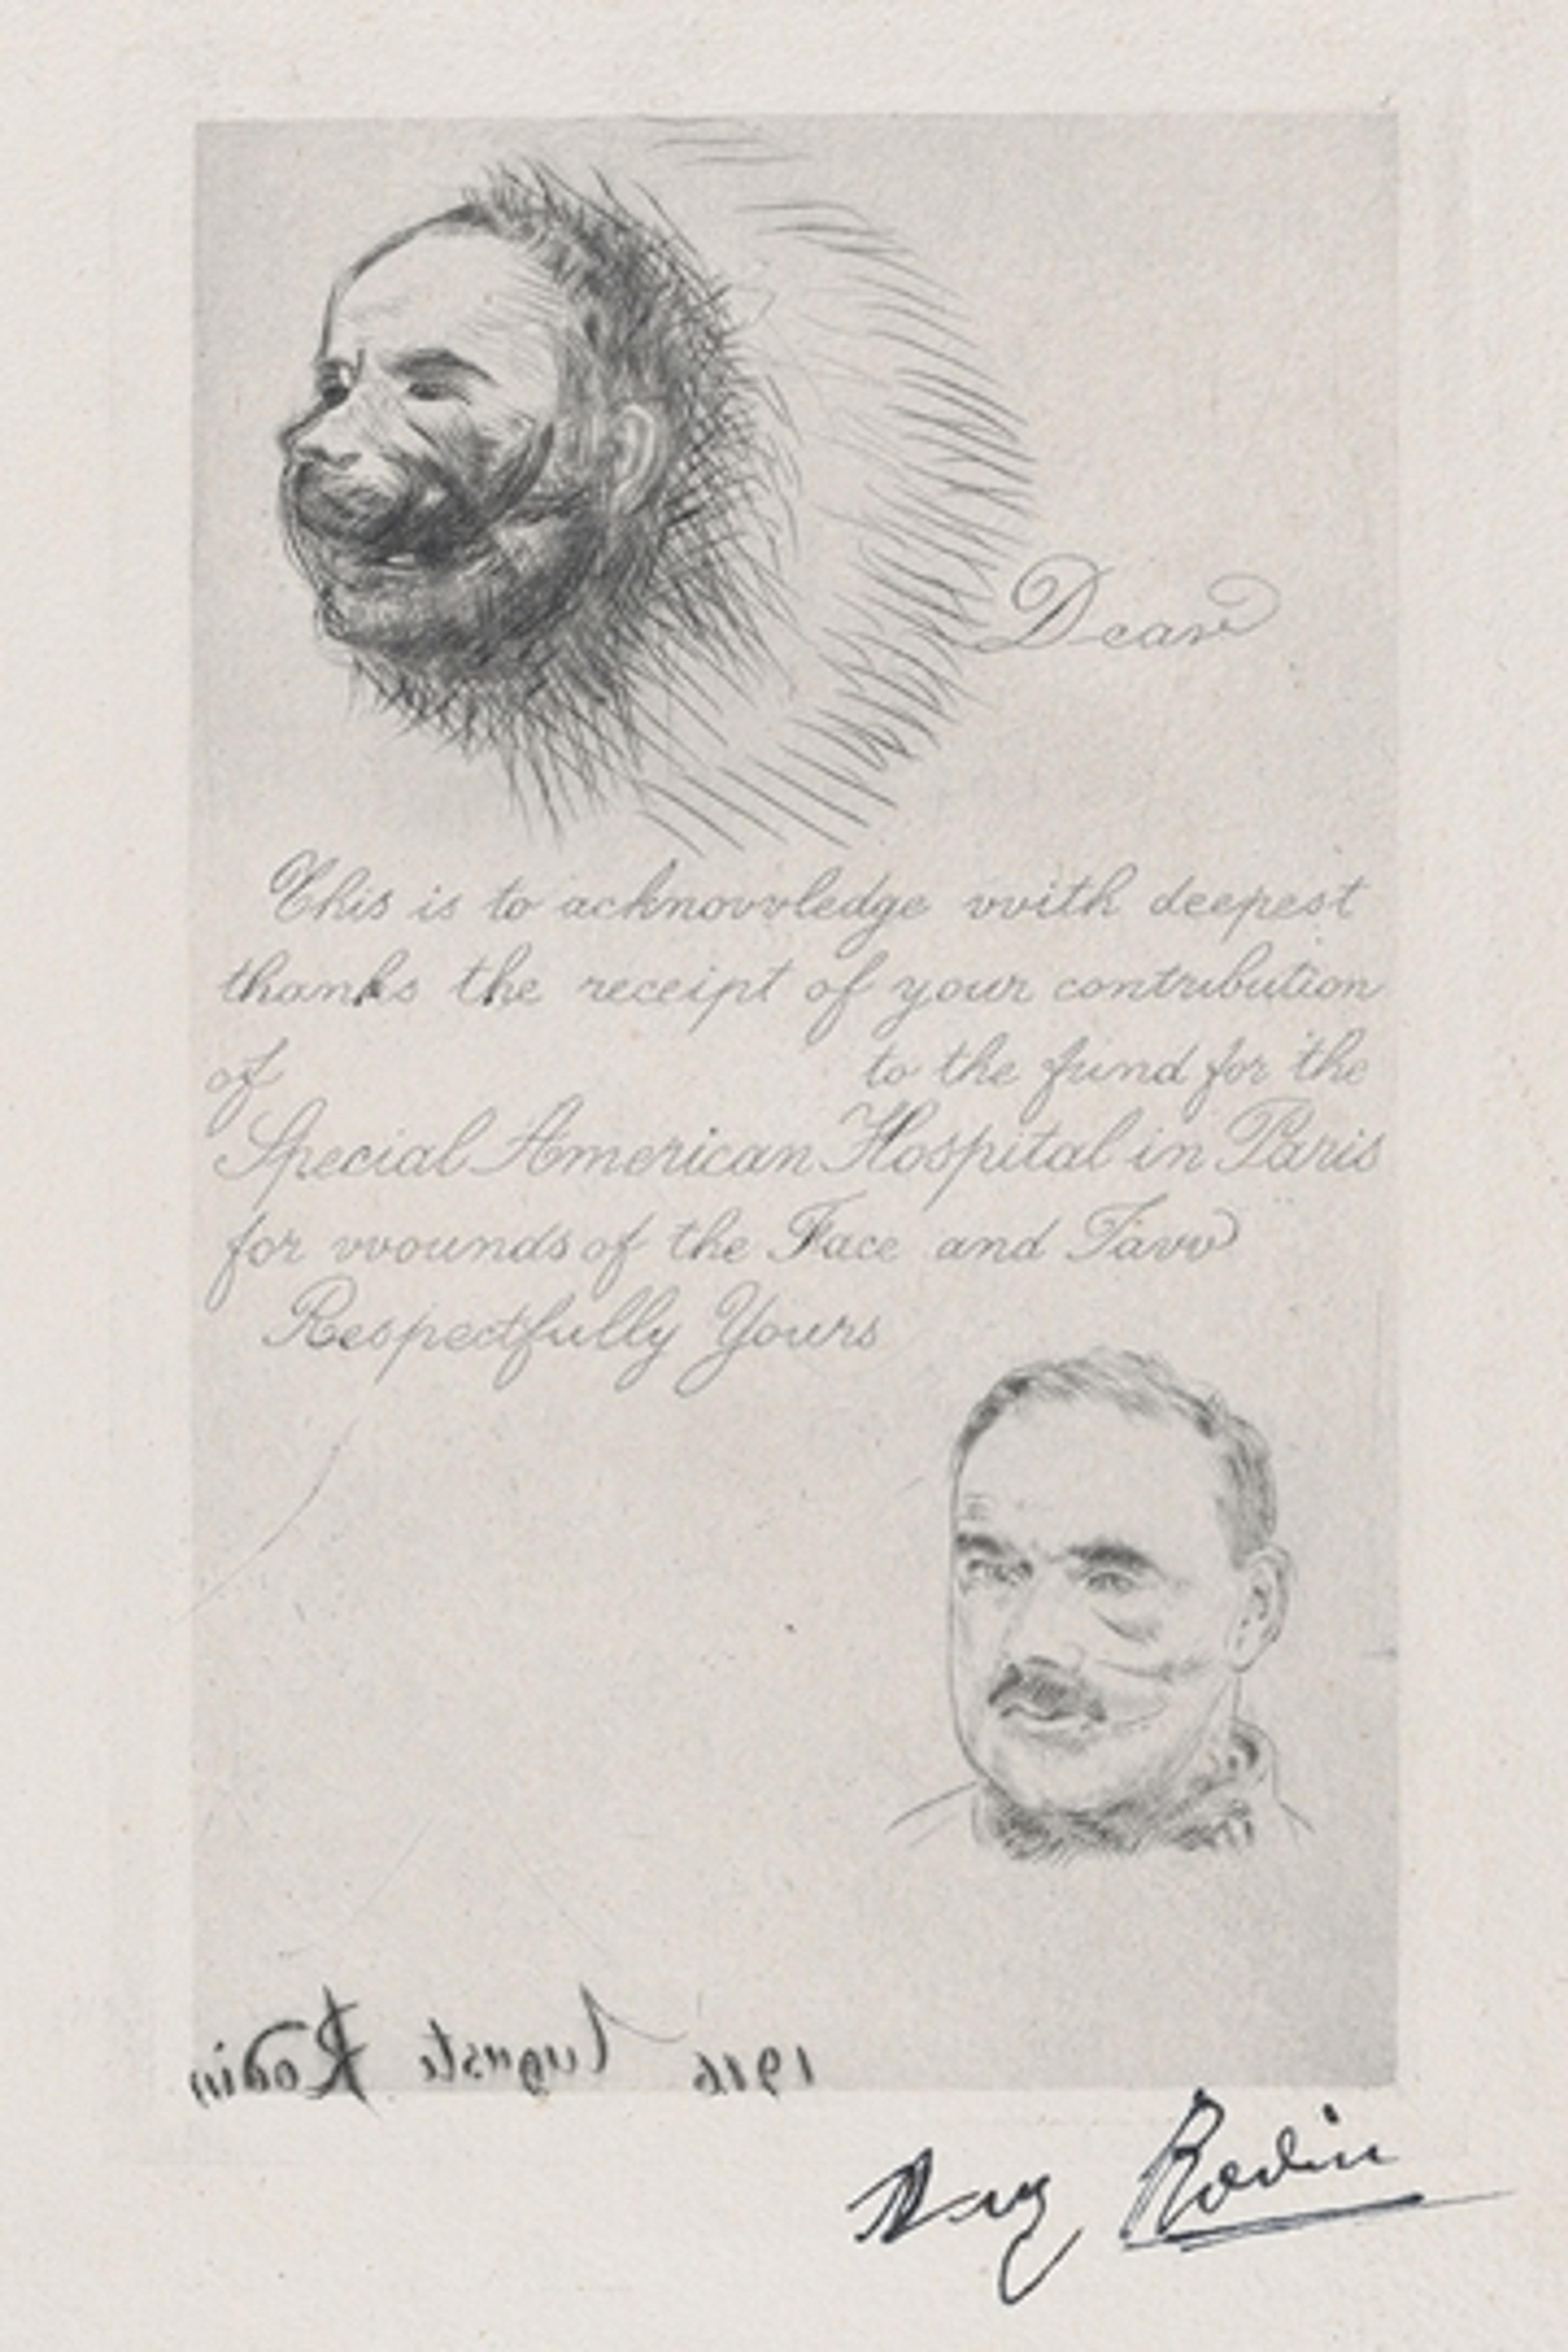 Dear
This is to acknowledge with deepest
thanks the receipt of your contribution
of to the fund for the
Special American Hospital in Paris
for wounds of the Face and Jaw
Respectfully Yours
1916 Auguste Rodin
Aug Rodin